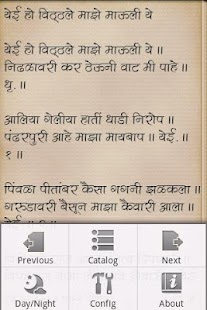 येई हो विठ्ठले माझे माऊली ये
येई हो विठ्ठले माझे माऊली ये ॥
निढळावरी कर ठेऊनी वाट मी पाहे ॥
धृ. ॥
आलिया गेलीया हातीं धाडी निरोप ॥
पंढरपुरी आहे माझा मायबाप ॥ येई. ॥
१ ॥
पिंवळा पीतांबर कैसा गगनी झळकला ॥
गरुडावरी बैसून माझा कैवारी आला ॥
Previous
Catalog
Next
Day/Night
Config
About